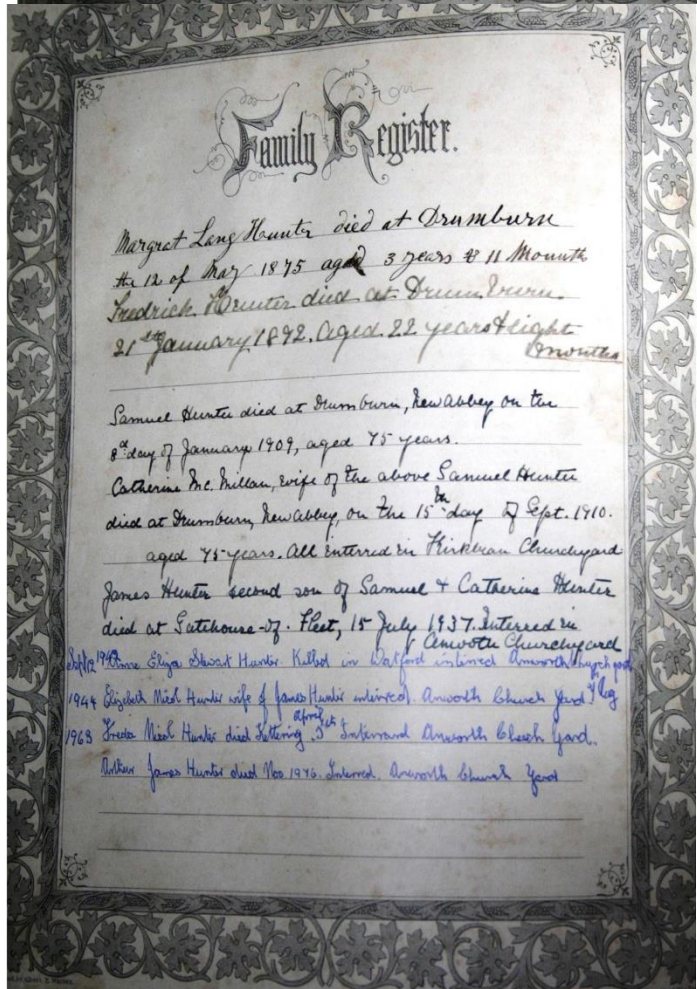 Family Register.
Margrat Lang Hunter died at Drumburn
the 12 of May 1875 aged 3 years & 11 Mounth
Fredrick Hunter died at Drumburn.
21st January 1892. Aged 22 years & eight
months
Samuel Hunter died at Drumburn, New Abbey on the
8th day of January 1909, aged 75 years.
Catherine Mc. Millan, wife of the above Samuel Hunter
died at Drumburn, New Abbey, on the 15th day of Sept. 1910.
aged 75 years. All interred in Kirkbean Churchyard
James Hunter second son of Samuel & Catherine Hunter
died at Gatehouse-of-Fleet, 15 July 1937. Interred in
Anwoth Churchyard
Sept 12 1942 Anne Eliza Stewart Hunter Killed in Watford interred Anworth
1944 Elizabeth Nicol Hunter wife of James Hunter interred. Anworth Church Yard
1963 Freda Nicol Hunter died Kettering April Interred Anworth Church Yard.
Arthur James Hunter died Nov. 1976. Interred. Anworth Church Yard